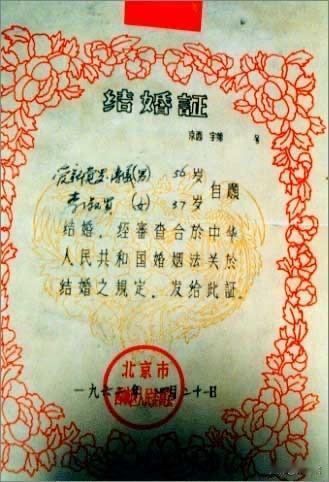 结婚証
京西 字第 号
爱新觉罗·溥儀(男) 56岁
李淑贤 (女) 37岁 自願
结婚，经審查合於中华
人民共和国婚姻法关於
结婚之規定，发给此証。
北京市
一九六二年 月二十一日